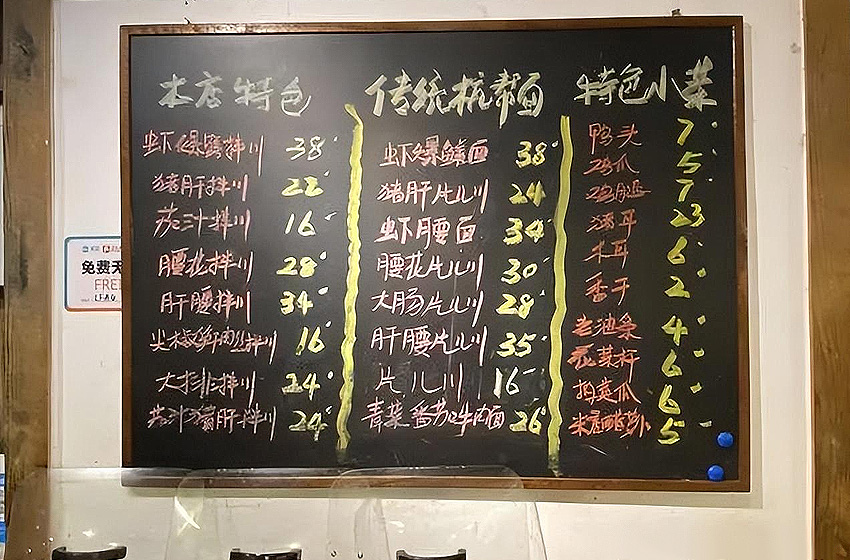 本店特色
虾爆鳝拌川 38
猪肝拌川 22
茄汁拌川 16
腰花拌川 28
肝腰拌川 34
尖椒鲜肉丝拌川 16
大排拌川 24
茄汁猪肝拌川 24
传统杭帮面
虾爆鳝面 38
猪肝片儿川 24
虾腰面 34
腰花片儿川 30
大肠片儿川 28
肝腰片儿川 35
片儿川 16
青菜番茄牛肉面 26
特色小菜
鸭头 7
鸡爪 5
鸡腿 7
猪耳 23
木耳 6
香干 2
老油条 4
花菜杆 6
拍黄瓜 6
本店萝卜 5
免费
FREE